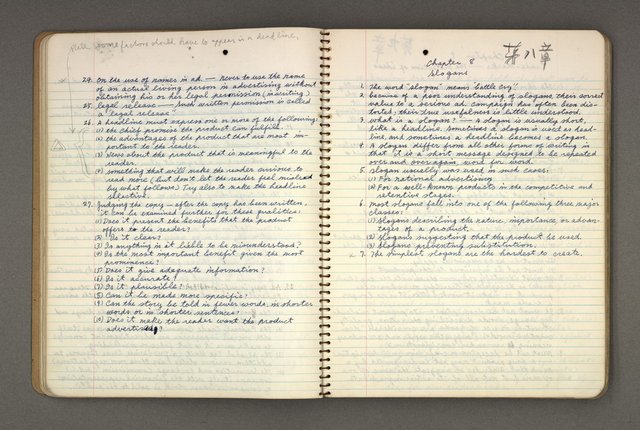 some factors should have to appear in a deadline,
24. On the use of names in ad. — never to use the name
of an actual living person in advertising without
obtaining his or her legal permission (in writing)
25. legal release — Such written permission is called
a "legal release"
26. A headline must express one or more of the following:
(1) the chief promise the product can fulfill.
(2) the advantages of the product that are most im-
portant to the reader.
(3) News about the product that is meaningful to the
reader.
(4) something that will make the reader curious to
read more (but don't let the reader feel mislead
by what follows) Try also to make the headline
selective.
27. Judging the copy — after the copy has been written,
it can be examined further for these qualities:
(1) Does it present the benefits that the product
offers to the reader?
(2) Is it clear?
(3) Is anything in it liable to be misunderstood?
(4) Is the most important benefit given the most
prominence?
(5) Does it give adequate information?
(6) Is it accurate?
(7) Is it plausible?
(8) Can it be made more specific?
(9) Can the story be told in fewer words, in shorter
words or in shorter sentences?
(10) Does it make the reader want the product
advertising?
Chapter 8 第八章
Slogans
1. The word "slogan" means battle cry.
2. because of a poor understanding of slogans, their correct
value to a serious ad. campaign has often been dis-
torted, their true usefulness is little understood.
3. what is a slogan? — A slogan is usually short,
like a headline. Sometimes a slogan is used as head-
line, and sometimes a headline becomes a slogan.
4. A slogan differs from all other forms of writing in
that it is a short message designed to be repeated
over and over again, word for word.
5. slogan usually was used in such cases:
(1) For national advertisers
(2) For a well-known products in the competitive and
retentive stages.
6. most slogans fall into one of the following three major
classes:
(1) Slogans describing the nature, importance, or advan-
tages of a product.
(2) Slogans suggesting that the product be used.
(3) Slogans preventing substitution.
7. The simplest slogans are the hardest to create.